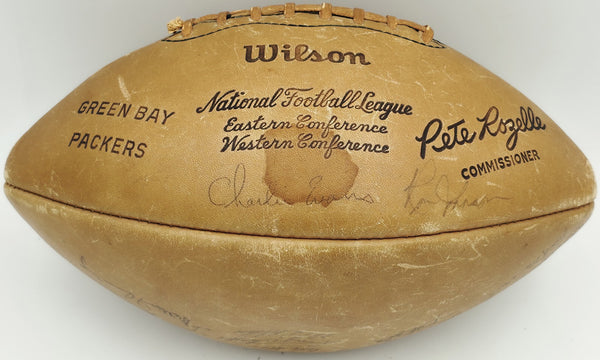 Wilson
National Football League
Eastern Conference
Western Conference
GREEN BAY
PACKERS
Pete Rozelle
COMMISSIONER
Charlie Evans